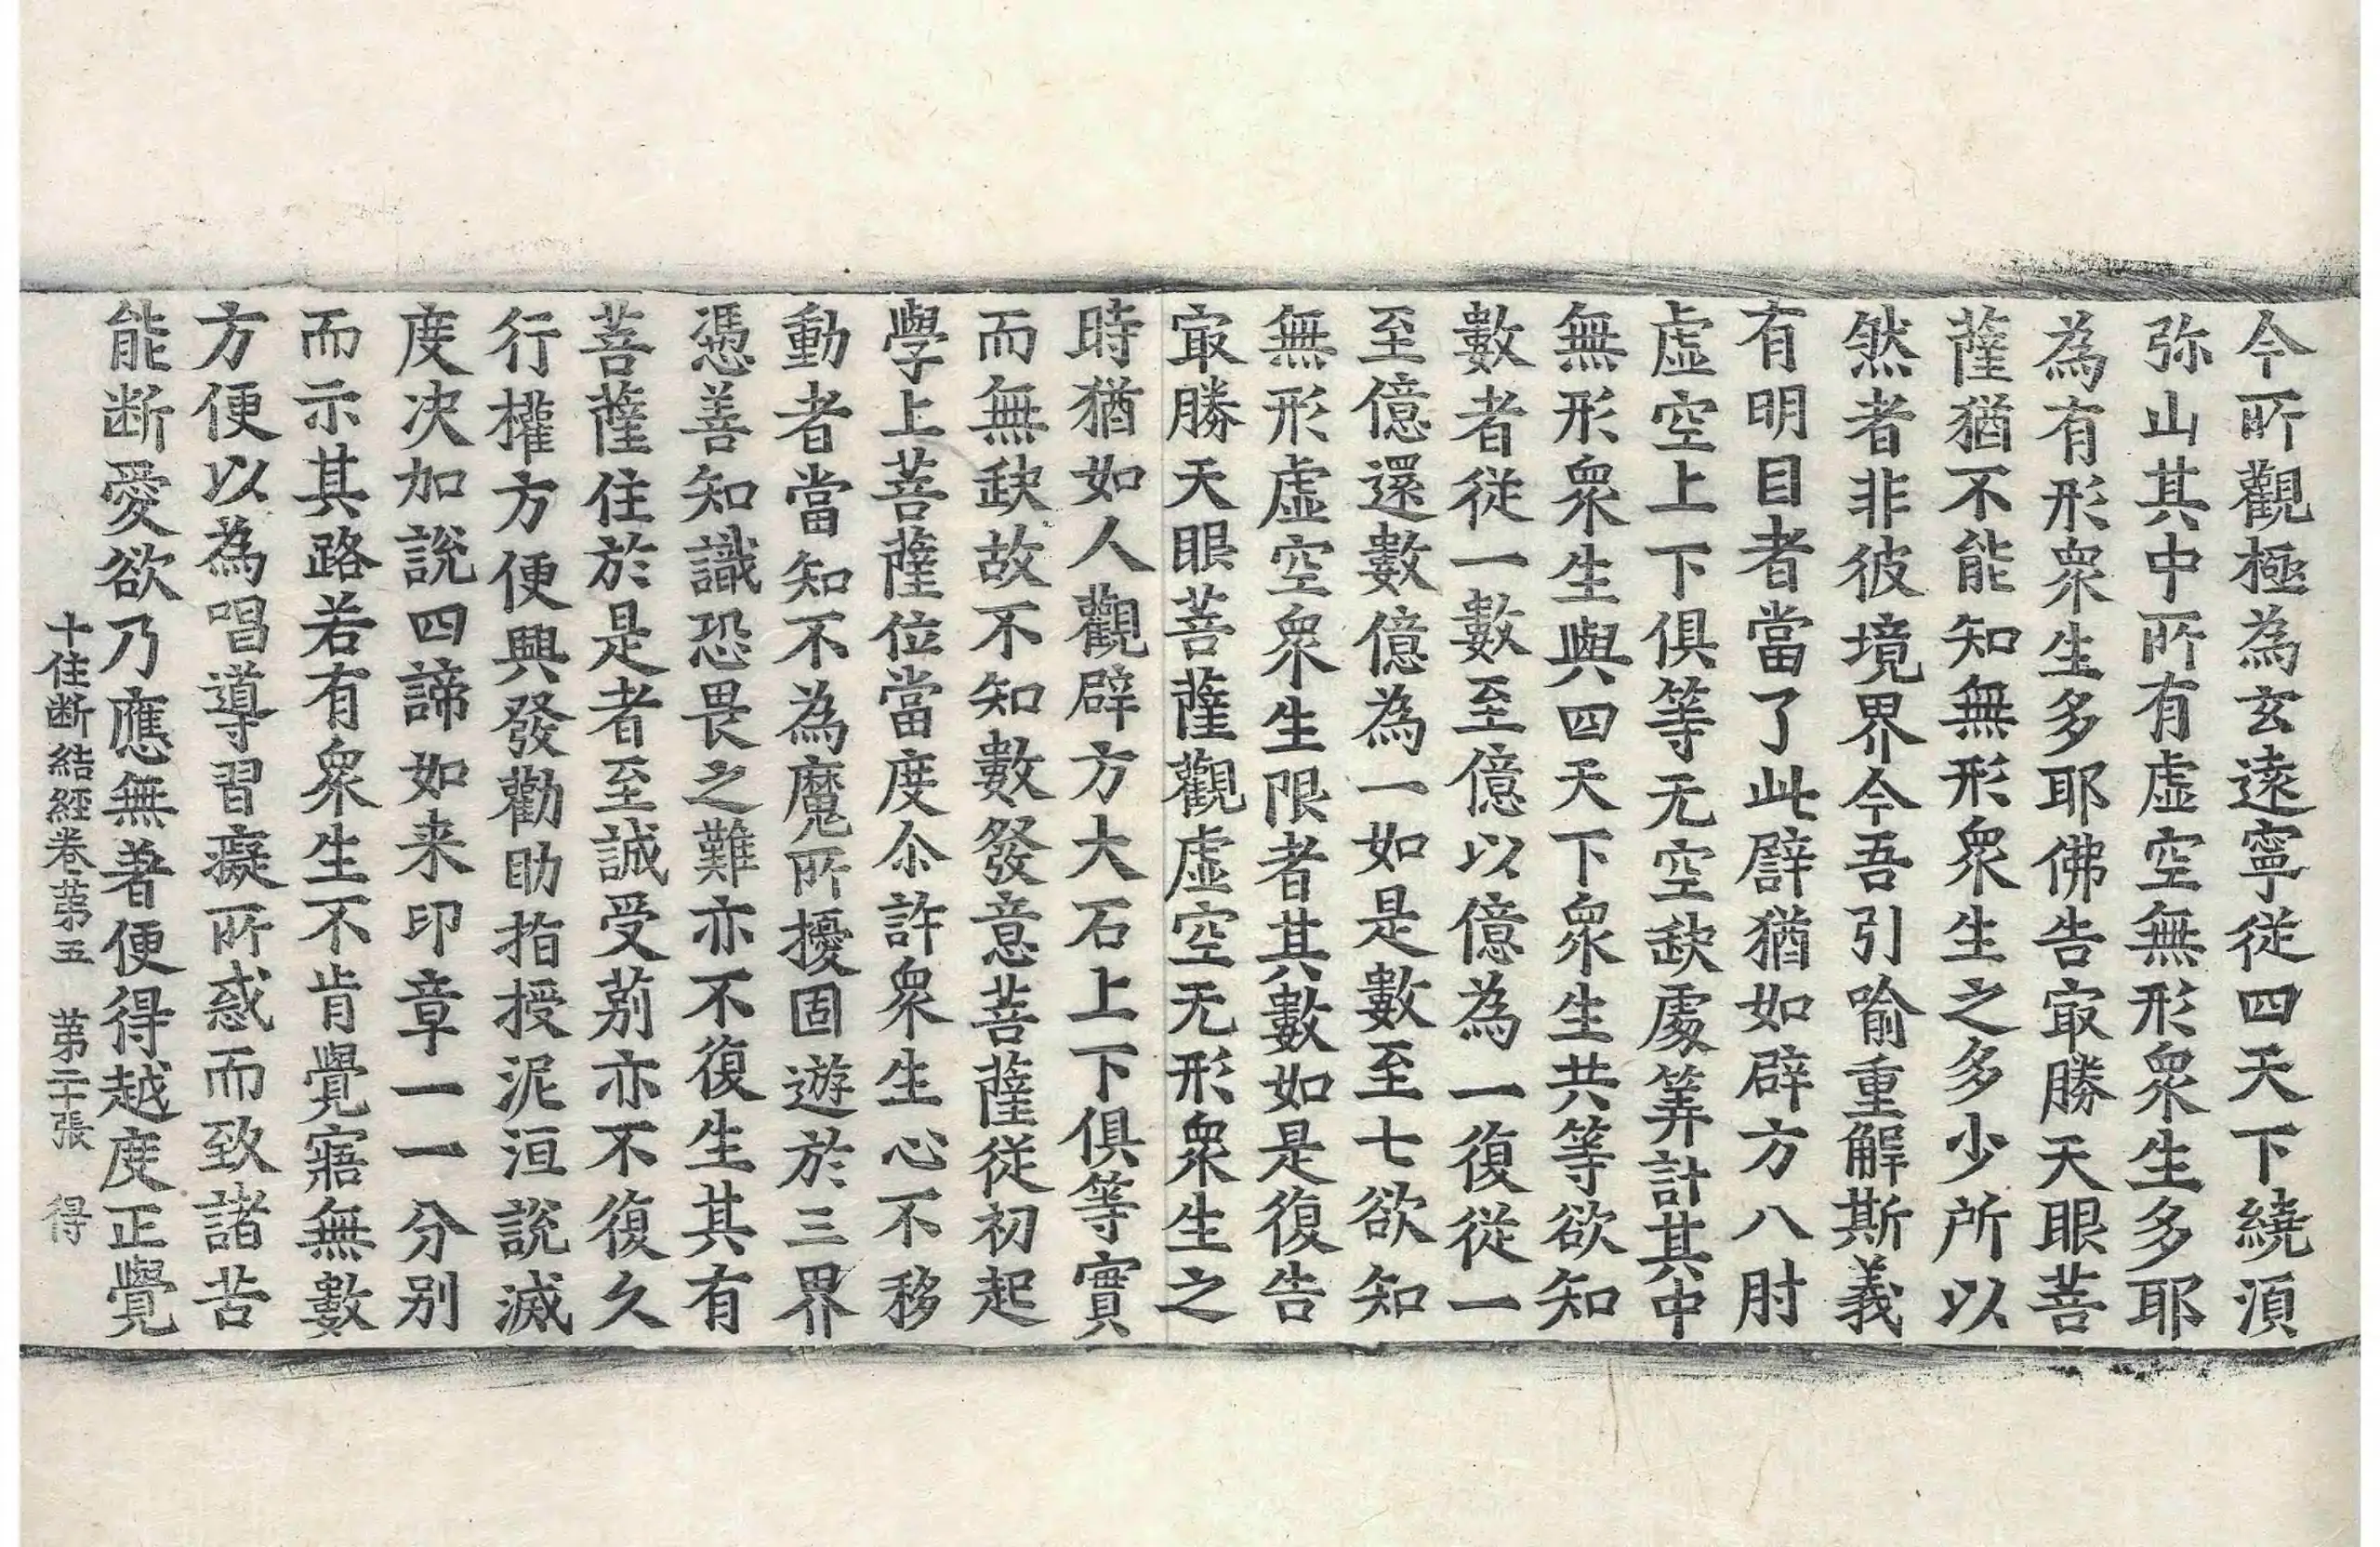 今所觀極為玄遠寧從四天下繞湏
弥山其中所有虛空無形衆生多耶
為有形衆生多耶佛告㝡勝天眼菩
薩猶不能知無形衆生之多少所以
然者非彼境界今吾引喻重解斯義
有明目者當了此譬猶如辟方八肘
虛空上下俱等无空缺處筭計其中
無形衆生與四天下衆生共等欲知
數者從一數至億以億為一復從一
至億還數億為一如是數至七欲知
無形虛空衆生限者其數如是復告
㝡勝天眼菩薩觀虛空无形衆生之
時猶如人觀辟方大石上下俱等實
而無缺故不知數發意菩薩從初起
學上菩薩位當度尒許衆生心不移
動者當知不為魔所擾固遊於三界
憑善知識恐畏之難亦不復生其有
菩薩住於是者至誠受莂亦不復久
行權方便興發勸助指授泥洹說滅
度決加說四諦如来印章一一分別
而示其路若有衆生不肯覺寤無數
方便以為唱導習癡所惑而致諸苦
能断愛欲乃應無著便得越度正覺
十住断結經卷第五　第二十張　得